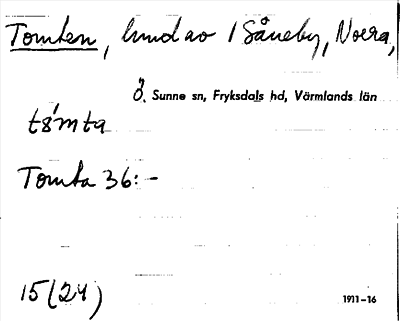 Tomten, hmd av 1 Såneby, Norra,
Ö. Sunne sn, Fryksdals hd, Värmlands län
tömta
Tomta 36:-
15(24)
1911–16